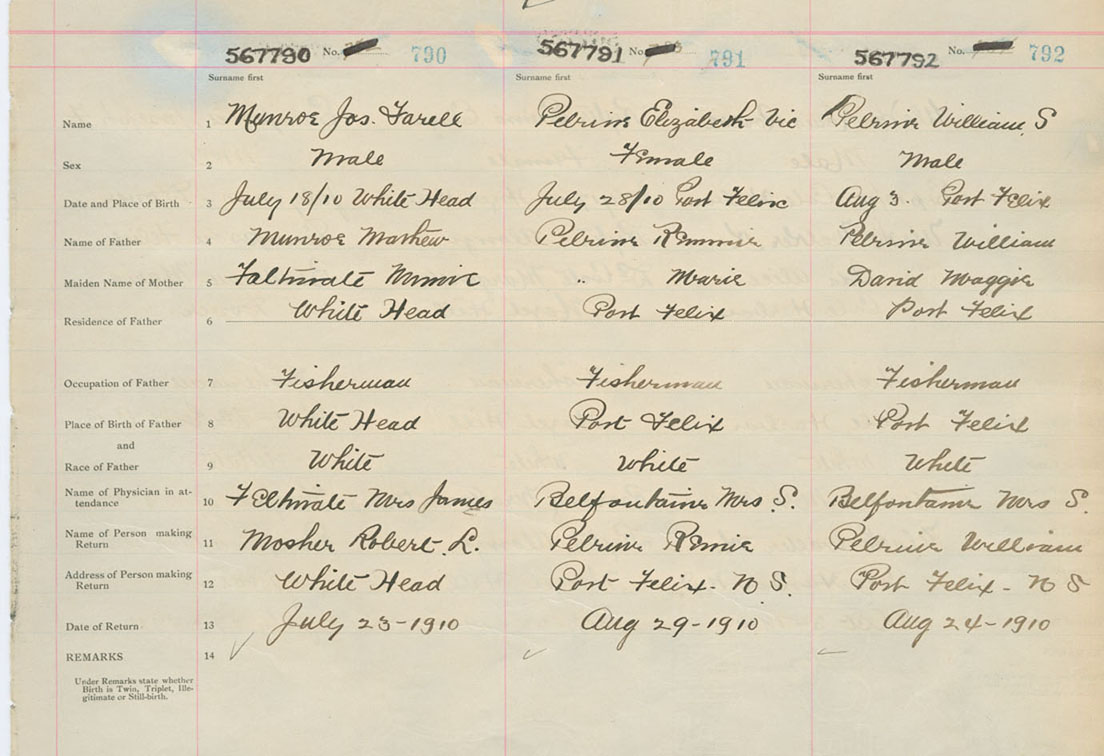 567790 No. 790 567791 No. 791 567792 No. 792
Surname first Surname first Surname first
Name 1 Munroe Jos. Farell Pelrine Elizabeth Vic Pelrine William S
Sex 2 Male Female Male
Date and Place of Birth 3 July 18/10 White Head July 28/10 Port Felix Aug 3. Port Felix
Name of Father 4 Munroe Mathew Pelrine Pelrine William
Maiden Name of Mother 5 Minnie " Marie David Maggie
Residence of Father 6 White Head Port Felix Port Felix
Occupation of Father 7 Fisherman Fisherman Fisherman
Place of Birth of Father 8 White Head Port Felix Port Felix
and
Race of Father 9 White White White
Name of Physician in at-
tendance 10 Feltmate Mrs James Belfontaine Mrs S. Belfontaine Mrs S.
Name of Person making
Return 11 Mosher Robert L. Pelrine Remie Pelrine William
Address of Person making
Return 12 White Head Port Felix - N S. Port Felix - N S
Date of Return 13 July 23-1910 Aug 29-1910 Aug 24-1910
REMARKS 14
Under Remarks state whether
Birth is Twin, Triplet, Ille-
gitimate or Still-birth.